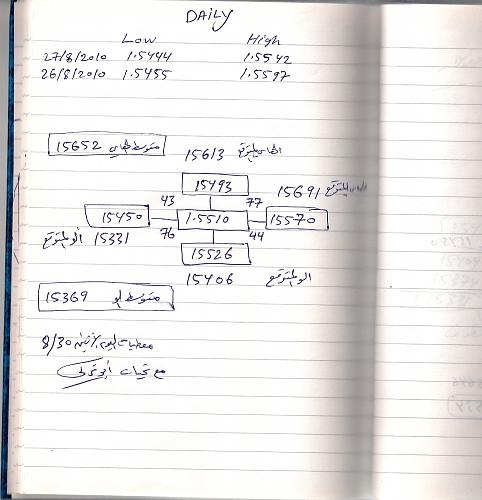 DAILY
Low High
27/8/2010 1.5444 1.5542
26/8/2010 1.5455 1.5597
15652 متوسط الهاي
15613 الهاي المتوقع
15493
43 77 15691 الهاي المتوقع
15450 1.5510 15570
76 44
15331 اللو المتوقع
15526
15406 اللو المتوقع
15369 متوسط لو
معطيات ليوم الاثنين 8/30
مع تحيات